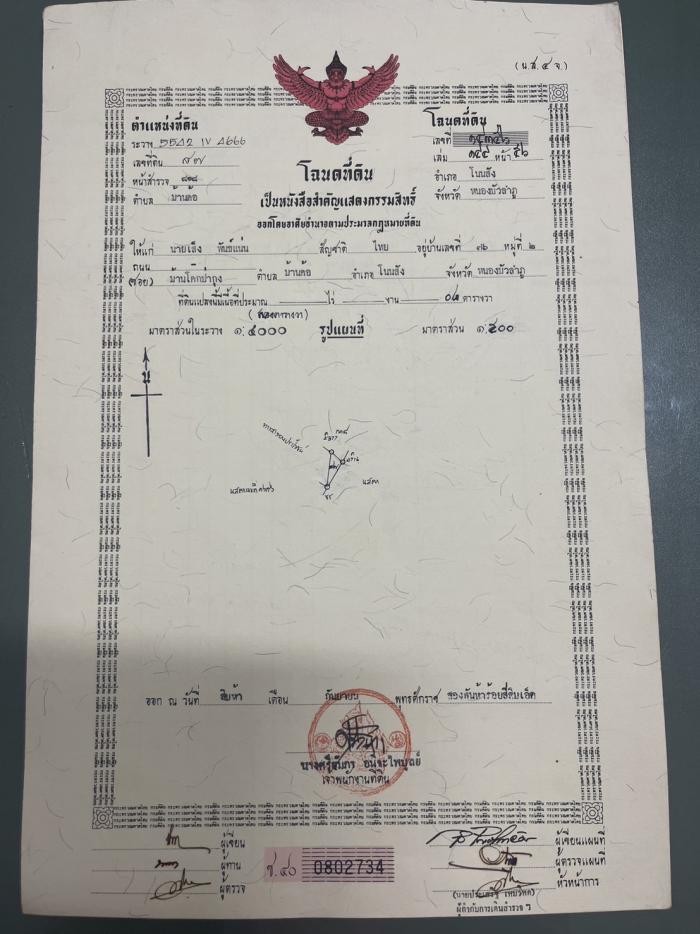 (น.ส.๔ จ.)
ตำแหน่งที่ดิน
ระวาง 5542 IV 4666
เลขที่ดิน ๙๗
หน้าสำรวจ
ตำบล บ้านค้อ
โฉนดที่ดิน
เลขที่
เล่ม ๑๔๔ หน้า ๕๖
อำเภอ โนนสัง
จังหวัด หนองบัวลำภู
โฉนดที่ดิน
เป็นหนังสือสำคัญแสดงกรรมสิทธิ์
ออกโดยอาศัยอำนาจตามประมวลกฎหมายที่ดิน
ให้แก่ นายเส็ง พันธ์แน่น สัญชาติ ไทย อยู่บ้านเลขที่ ๓๖ หมู่ที่ ๒
ถนน
(ซอย) บ้านโคกป่ากุง ตำบล บ้านค้อ อำเภอ โนนสัง จังหวัด หนองบัวลำภู
ที่ดินแปลงนี้มีเนื้อที่ประมาณ ไร่ งาน ตารางวา
มาตราส่วนในระวาง ๑:๔๐๐๐ รูปแผนที่ มาตราส่วน ๑:๕๐๐
น
ทางสาธารณประโยชน์
ออก ณ วันที่ สิบห้า เดือน กันยายน พุทธศักราช สองพันห้าร้อยสี่สิบเอ็ด
เจ้าพนักงานที่ดิน
ผู้เขียน
ผู้ทาน
ผู้ตรวจ
ช.๔๐ 0802734
ผู้เขียนแผนที่
ผู้ตรวจแผนที่
หัวหน้าการ
ผู้กำกับการเดินสำรวจ ฯ